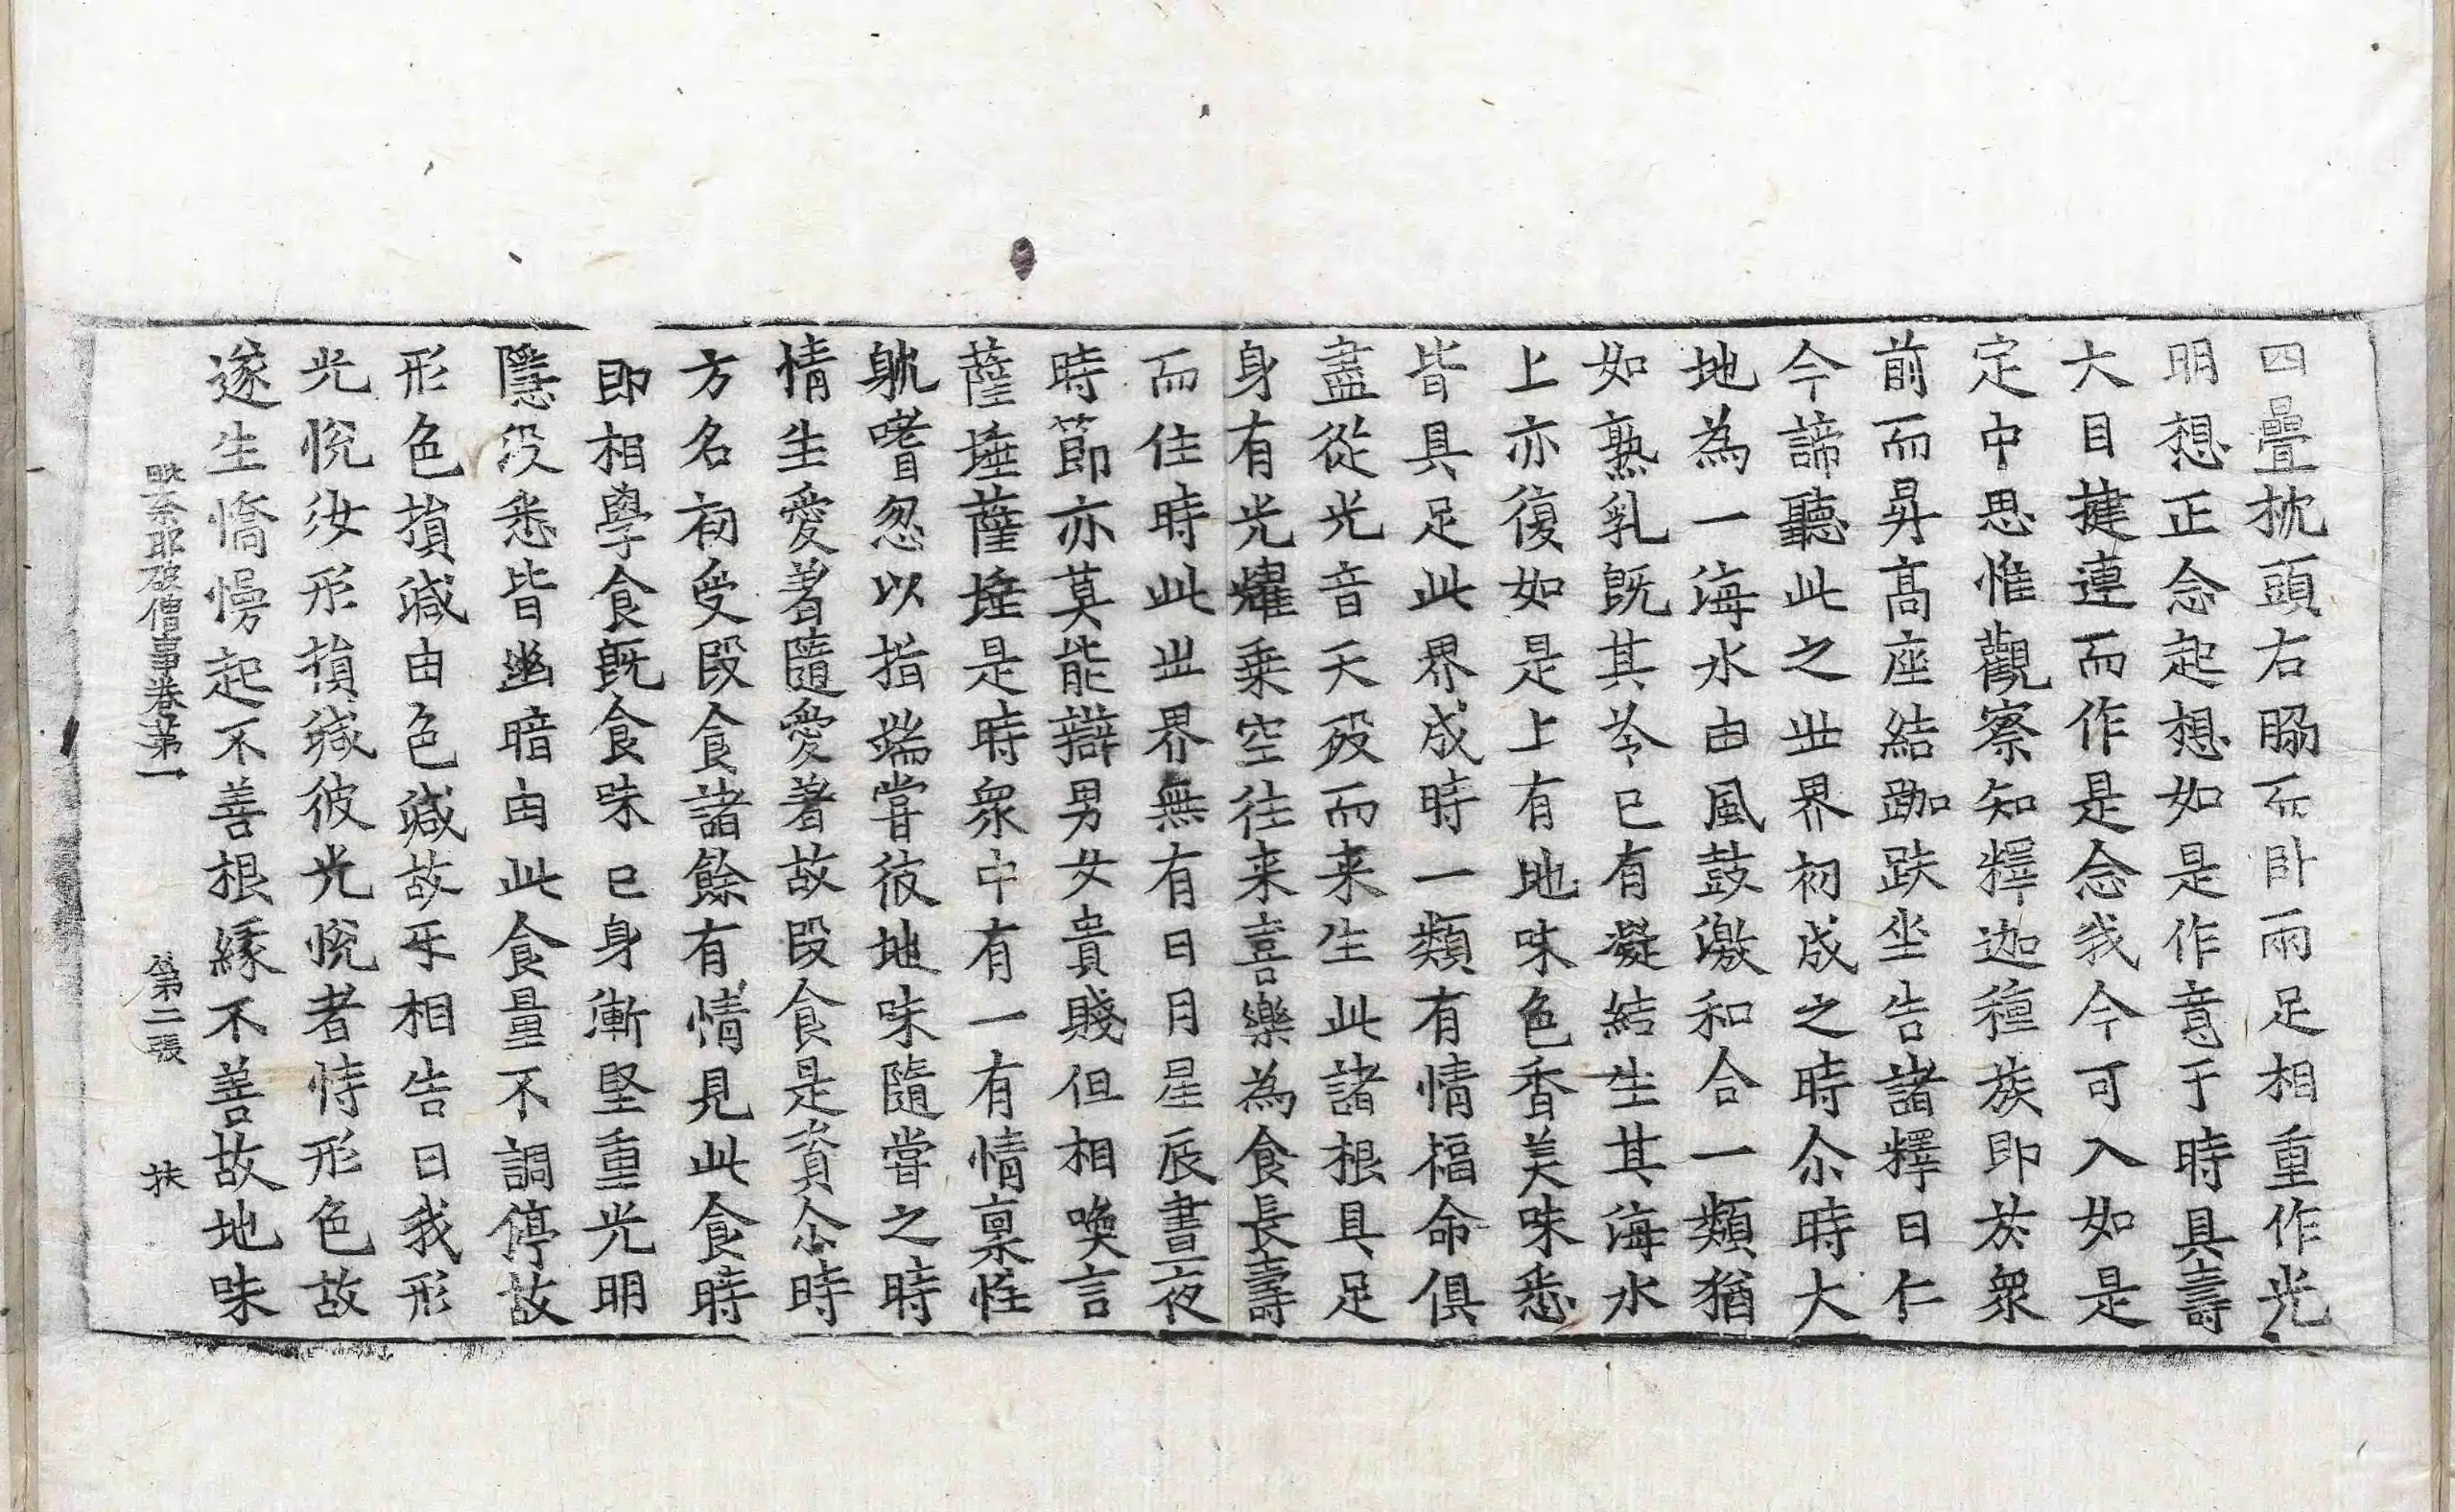 四疊枕頭右脇而卧兩足相重作光
明想正念起想如是作意于時具壽
大目揵連而作是念我今可入如是
定中思惟觀察知釋迦種族即於衆
前而昇高座結跏趺坐告諸釋曰仁
今諦聽此之世界初成之時尒時大
地為一海水由風鼓激和合一類猶
如熟乳既其冷已有凝結生其海水
上亦復如是上有地味色香美味悉
皆具足此界成時一類有情福命俱
盡從光音天歿而来生此諸根具足
身有光耀乗空往来喜樂為食長壽
而住時此世界無有日月星辰晝夜
時節亦莫能辯男女貴賤但相喚言
薩埵薩埵是時衆中有一有情稟性
躭嗜忽以指端嘗彼地味隨嘗之時
情生愛著隨愛著故段食是資尒時
方名初受段食諸餘有情見此食時
即相學食既食味已身漸堅重光明
隱没悉皆幽暗由此食量不調停故
形色損減由色減故互相告曰我形
光悅汝形損減彼光悅者恃形色故
遂生憍慢起不善根緣不善故地味
毗奈耶破僧事卷第一　第二張　扶